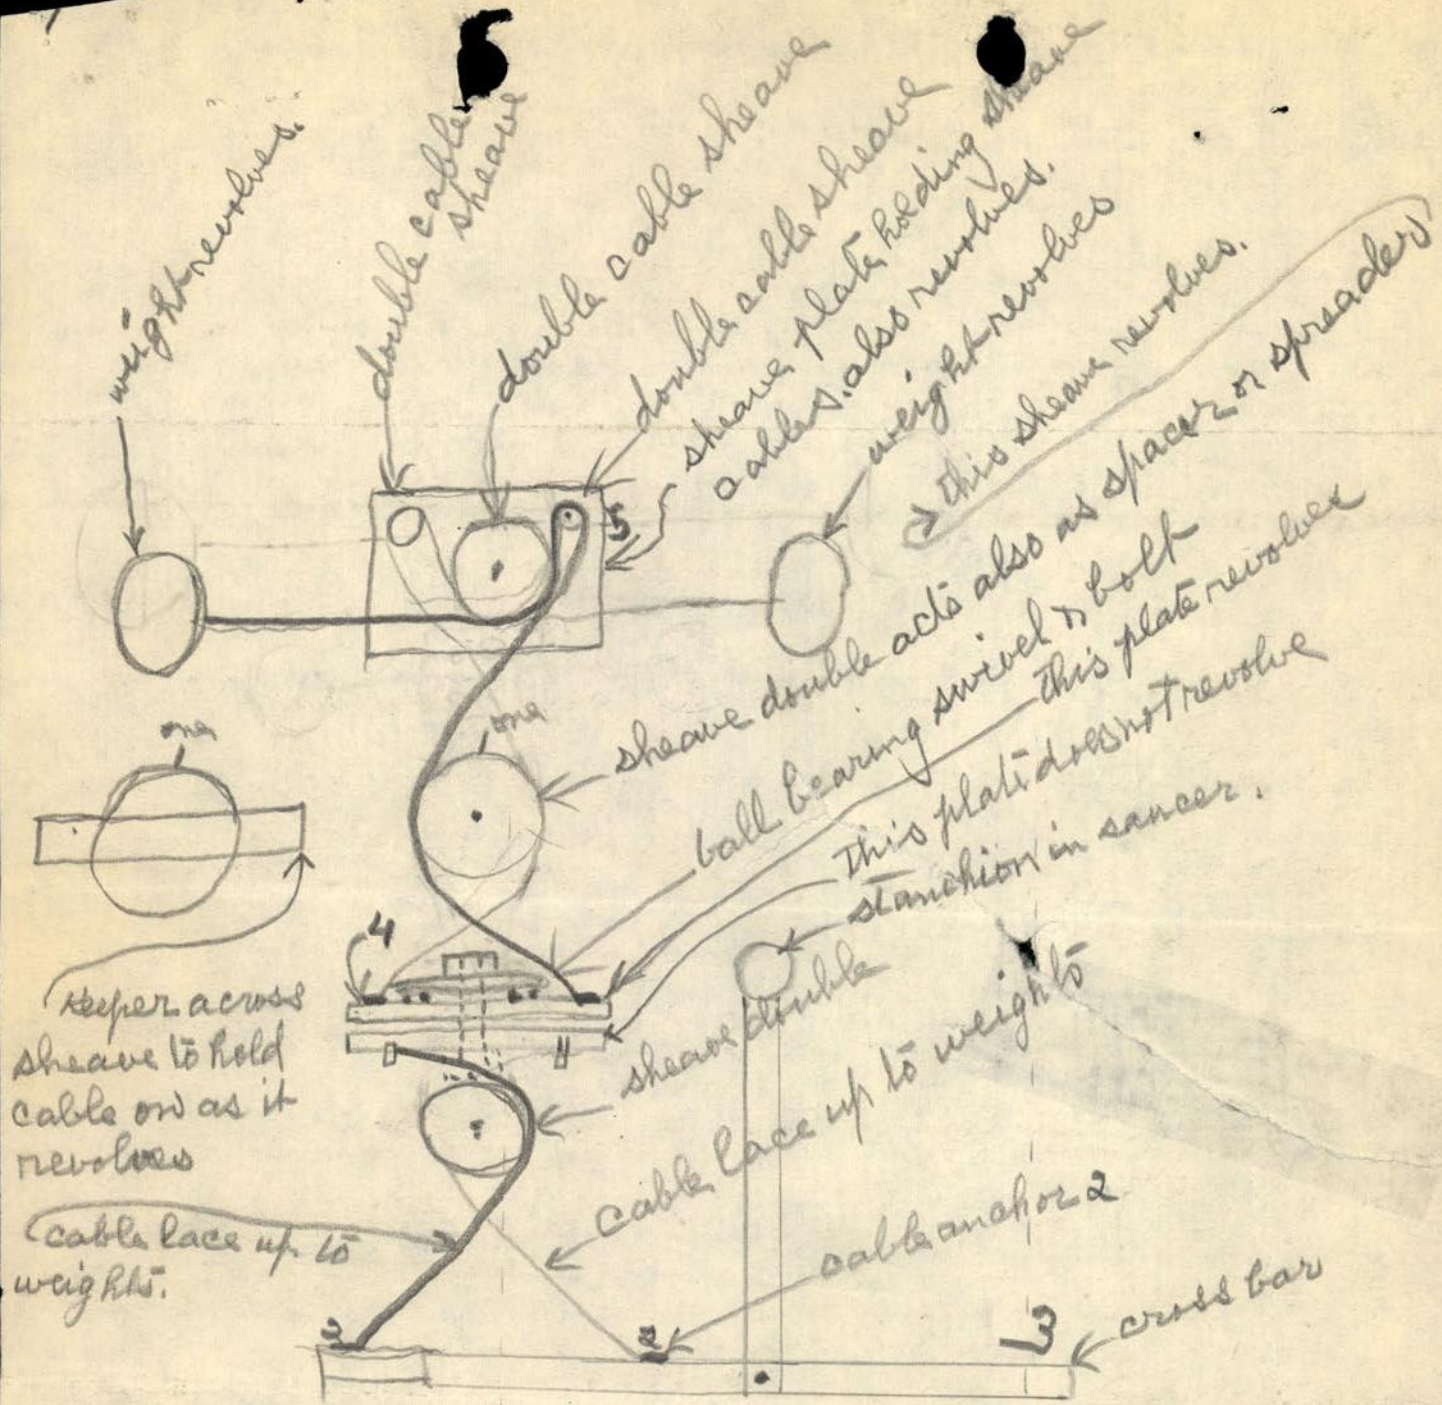 weight revolves.
double cable
sheave
double cable sheave
double cable sheave
sheave plate holding sheave
cables. also revolves.
weight revolves
this sheave revolves.
5
one
one
sheave double acts also as spacer or spreader
ball bearing swivel & bolt
this plate revolves
this plate does not revolve
stanchion in saucer.
4
keeper across
sheave to hold
cable on as it
revolves
sheave double
cable lace up to weights
cable lace up to
weights.
cable anchor 2
2
2
3
cross bar